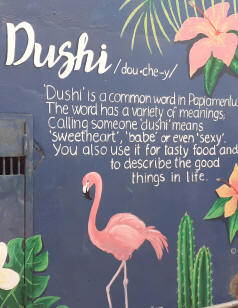 Dushi /dou·che-y/
'Dushi' is a common word in Papiamentu.
The word has a variety of meanings;
Calling someone 'dushi' means
'sweetheart', 'babe' or even 'sexy'.
You also use it for tasty food and
to describe the good
things in life.